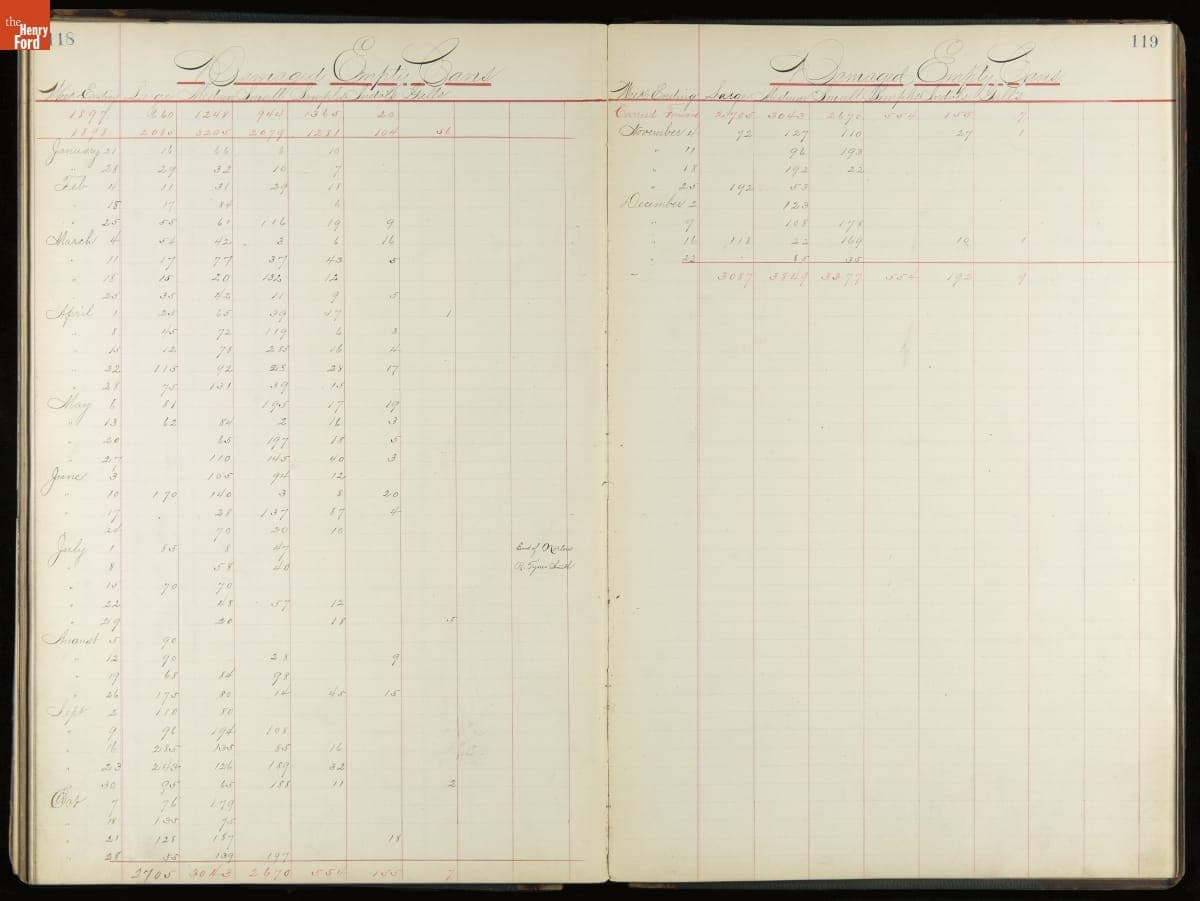 the Henry Ford
118
Damaged Empty Cans
Week Ending Large Medium Small Samples
1897 1248 944 1365 20
1898 2080 3205 2079 1281 104 56
January 21 16 66 6 10
" 28 29 32 10 7
Feb 4 11 31 29 18
" 18 17 84 6
" 25 55 61 116 19 9
March 4 54 42 3 6 16
" 11 17 77 37 43 5
" 18 15 20 132 12
" 25 35 42 11 9 5
April 1 25 65 39 17 1
" 8 45 72 119 6 3
" 15 12 78 235 16 4
" 22 115 92 28 17
" 28 75 131 39 15
May 6 81 195 17 19
" 13 62 84 2 16 3
" 20 65 197 18 5
" 27 110 145 40 3
June 3 105 94 12
" 10 170 140 3 8 20
" 17 28 137 87 4
" 24 70 20 10
July 1 85 8 47 End of
" 8 58 40 R. Tynes Smith
" 15 70 70
" 22 48 57 12
" 29 20 18 5
August 5 90
" 12 90 28 9
" 19 68 84 98
" 26 175 80 14 45 15
Sept 2 110 80
" 9 96 194 108
" 16 285 135 85 16
" 23 243 126 189 32
" 30 95 65 188 11 2
Oct 7 76 179
" 18 135 75
" 21 128 187 18
" 28 35 139 197
2705 3043 2670 554 155 7
119
Damaged Empty Cans
Week Ending Large Medium Small Samples
Carried Forward 2705 3043 2670 554 155 7
November 4 72 127 110 27 1
" 11 96 193
" 18 192 22
" 25 192 53
December 2 123
" 9 108 178
" 16 118 22 169 10 1
" 22 85 35
3087 3849 3377 554 192 9